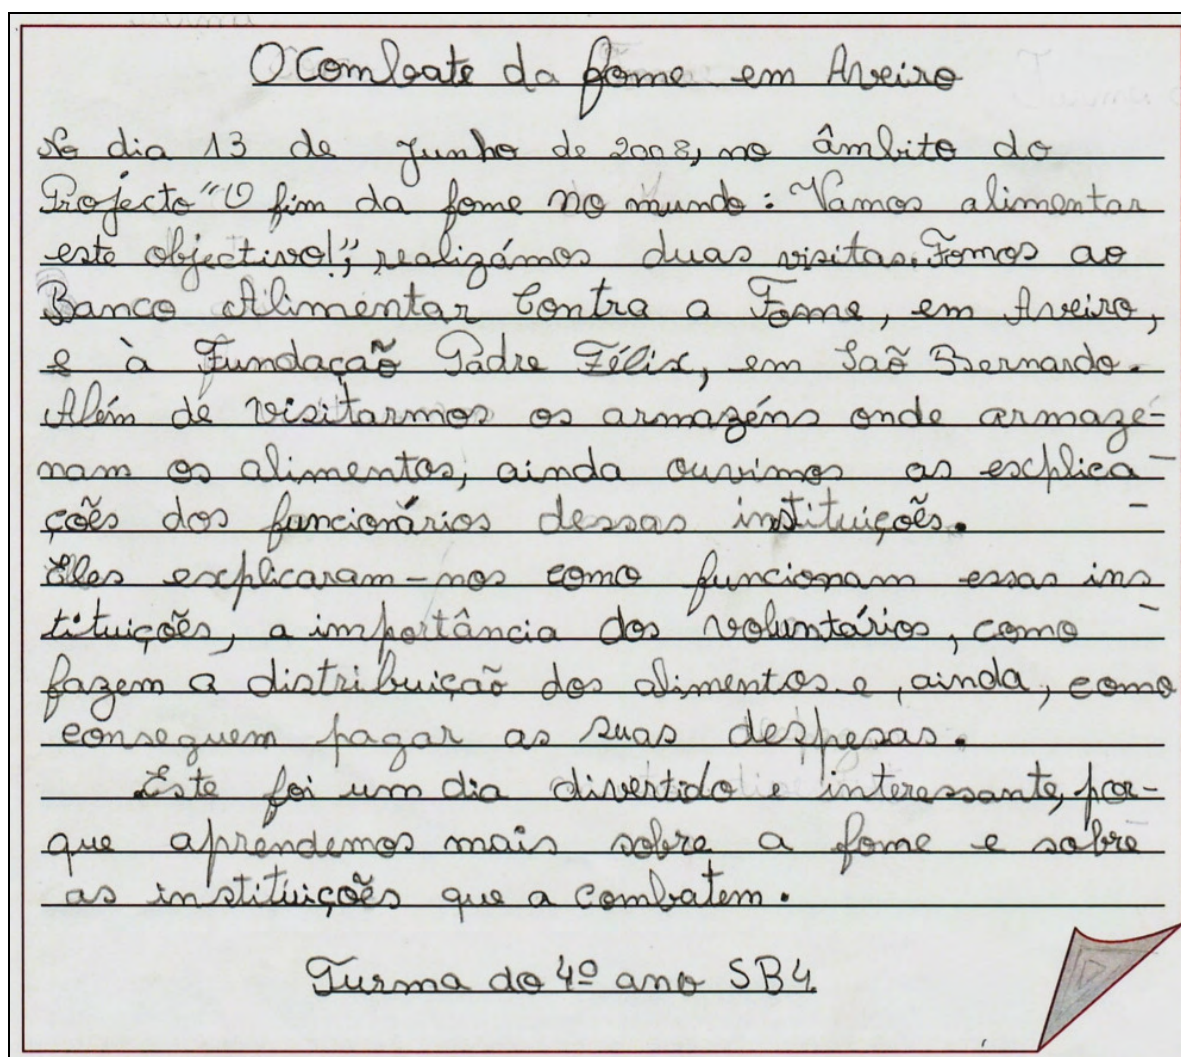 O Combate da fome em Aveiro
No dia 13 de Junho de 2008, no âmbito do
Projecto "O fim da fome no mundo: Vamos alimentar
este objectivo!", realizámos duas visitas. Fomos ao
Banco Alimentar Contra a Fome, em Aveiro,
e à Fundação Padre Félix, em São Bernardo.
Além de visitarmos os armazéns onde armaze-
nam os alimentos, ainda ouvimos as explica-
ções dos funcionários dessas instituições.
Eles explicaram-nos como funcionam essas ins-
tituições, a importância dos voluntários, como
fazem a distribuição dos alimentos e, ainda, como
conseguem pagar as suas despesas.
Este foi um dia divertido e interessante, por-
que aprendemos mais sobre a fome e sobre
as instituições que a combatem.
Turma do 4º ano SB4